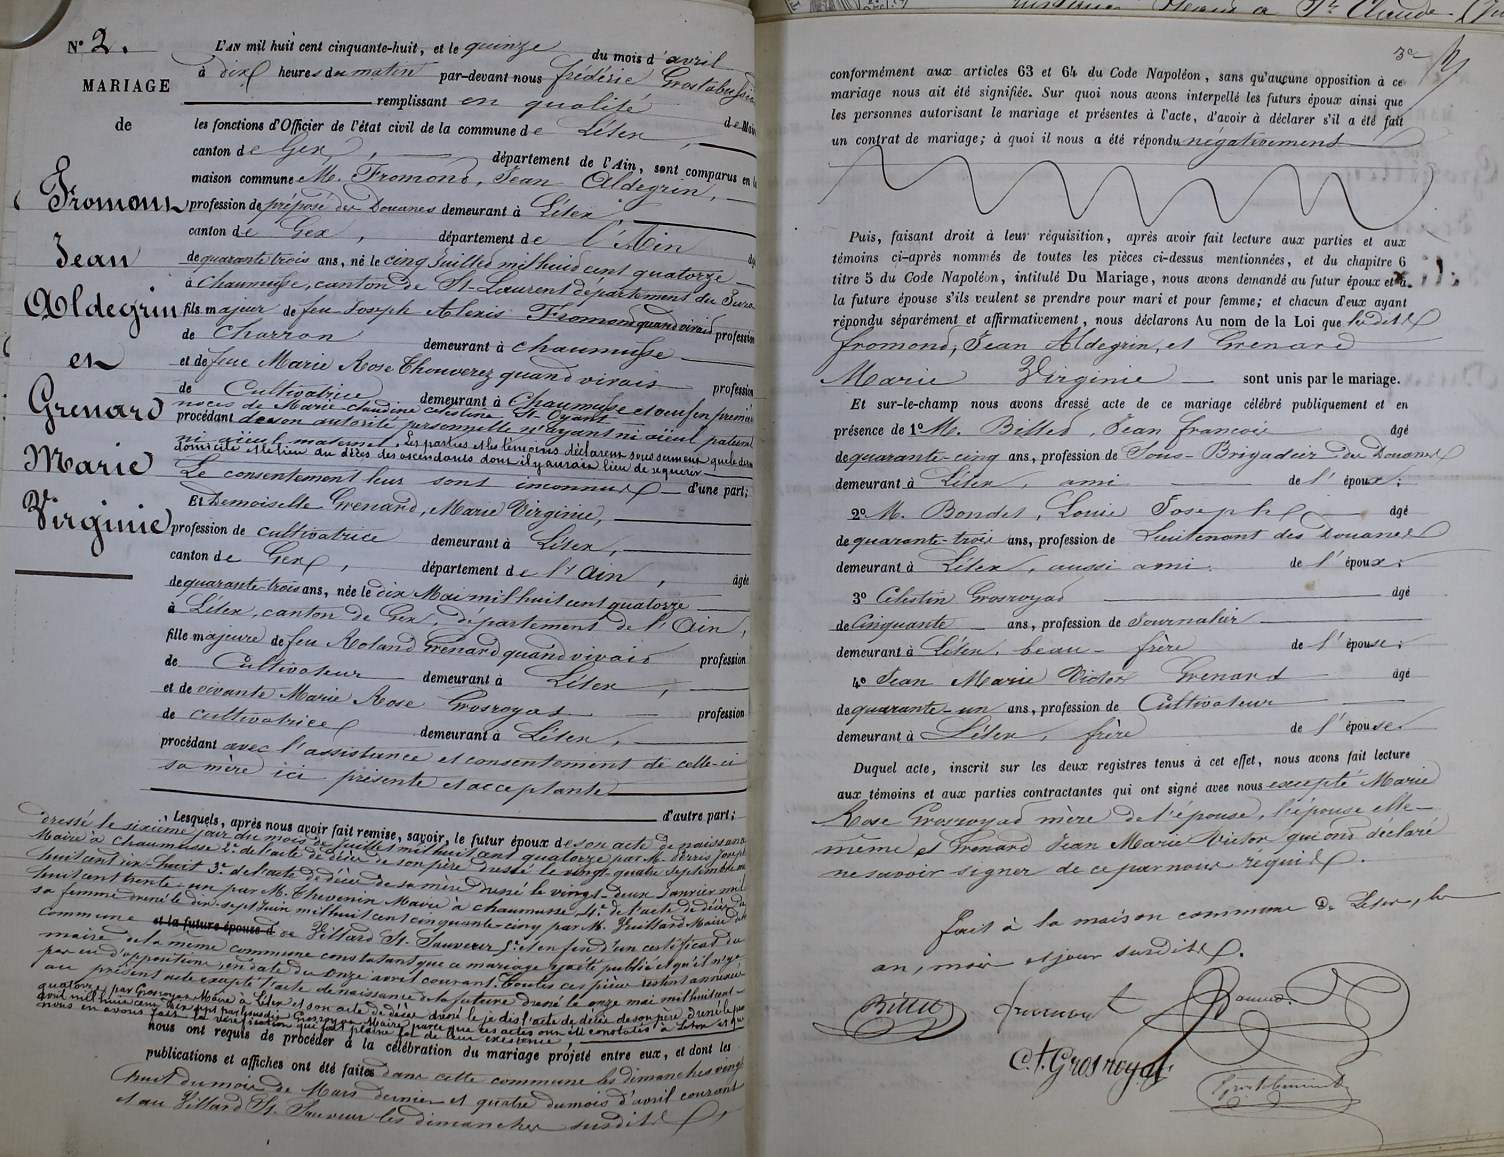 N° 2.
MARIAGE
de
Fromond
Jean
Aldegrin
et
Grenard
Marie
Virginie
L'AN mil huit cent cinquante-huit, et le quinze du mois d'avril
à dix heures du matin par-devant nous frédéric
remplissant en qualité de Maire
les fonctions d'Officier de l'état civil de la commune de Lélex,
canton de Gex, département de l'Ain, sont comparus en la
maison commune M. Fromond, Jean Aldegrin,
profession de préposé des Douanes demeurant à Lélex,
canton de Gex, département de l'Ain
de quarante trois ans, né le cinq Juillet mil huit cent quatorze
à Chaumusse, canton de St-Laurent département du Jura
fils majeur de feu Joseph Alexis Fromond quand vivait profession
de Charron demeurant à Chaumusse
et de feue Marie Rose Thouverez quand vivait profession
de Cultivatrice demeurant à Chaumusse et veuf en premières
noces de Marie-Claudine Célestine St. Oyant
procédant de son autorité personnelle n'ayant ni aïeul paternel
ni aïeul maternel, Les parties et les témoins déclarent sous serment que le dernier
domicile et le lieu du décès des ascendants dont il y aurait lieu de requérir
Le consentement leur sont inconnus d'une part;
Et Demoiselle Grenard, Marie Virginie,
profession de cultivatrice demeurant à Lélex,
canton de Gex, département de l'Ain, âgée
de quarante-trois ans, née le dix Mai mil huit cent quatorze
à Lélex, canton de Gex, département de l'Ain,
fille majeure de feu Roland Grenard quand vivait profession
de Cultivateur demeurant à Lélex,
et de vivante Marie Rose Grosroyat profession
de cultivatrice demeurant à Lélex,
procédant avec l'assistance et consentement de celle-ci
sa mère ici présente et acceptante
d'autre part;
Lesquels, après nous avoir fait remise, savoir, le futur époux de son acte de naissance
dressé le sixième jour du mois de Juillet mil huit cent quatorze par M.
Maire à Chaumusse 2° de l'acte de décès de son père dressé le vingt-quatre Septembre mil
huit cent dix-huit 3° de l'acte de décès de sa mère dressé le vingt-deux Janvier mil
huit cent trente-un par M. Thevenin Maire à chaumusse, 4° de l'acte de décès de
sa femme dressé le dix-sept Juin mil huit cent cinquante-cinq par M. Maire de la
commune et la future épouse d de Villard St. Sauveur 5° et enfin d'un certificat du
maire de la même commune constatant que ce mariage y a été publié et qu'il n'y a
pas eu d'opposition, en date du onze avril courant. toutes ces pièces restent annexées
au présent acte excepté l'acte de naissance de la future dressé le onze mai mil huit cent
quatorze par Grosroyat Maire à Lélex et son acte de décès dressé le je dis l'acte de décès de son père dressé le
mil huit cent par Grosroyat Maire parce que ces actes ont été constatés à Lélex et que
nous en avons fait la vérification qui fait pleine foi de leur existence;
nous ont requis de procéder à la célébration du mariage projeté entre eux, et dont les
publications et affiches ont été faites dans cette commune les dimanches vingt
huit du mois de Mars dernier et quatre du mois d'avril courant
et au Villard St. Sauveur les dimanches susdits.
3e
conformément aux articles 63 et 64 du Code Napoléon, sans qu'aucune opposition à ce
mariage nous ait été signifiée. Sur quoi nous avons interpellé les futurs époux ainsi que
les personnes autorisant le mariage et présentes à l'acte, d'avoir à déclarer s'il a été fait
un contrat de mariage; à quoi il nous a été répondu négativement
Puis, faisant droit à leur réquisition, après avoir fait lecture aux parties et aux
témoins ci-après nommés de toutes les pièces ci-dessus mentionnées, et du chapitre 6
titre 5 du Code Napoléon, intitulé Du Mariage, nous avons demandé au futur époux et à
la future épouse s'ils veulent se prendre pour mari et pour femme; et chacun d'eux ayant
répondu séparément et affirmativement, nous déclarons Au nom de la Loi que lesdits
fromond, Jean Aldegrin, et Grenard
Marie Virginie sont unis par le mariage.
Et sur-le-champ nous avons dressé acte de ce mariage célébré publiquement et en
présence de 1° M. Billet, Jean francois âgé
de quarante-cinq ans, profession de Sous-Brigadier des Douanes
demeurant à Lélex, ami de l'époux;
2° M. Bondet, Louis Joseph âgé
de quarante-trois ans, profession de Lieutenant des Douanes
demeurant à Lélex, aussi ami de l'époux;
3° Célestin Grosroyat âgé
de Cinquante ans, profession de Journalier
demeurant à Lélex, beau-frère de l'épouse;
4° Jean Marie Victor Grenard âgé
de quarante-un ans, profession de Cultivateur
demeurant à Lélex, frère de l'épouse.
Duquel acte, inscrit sur les deux registres tenus à cet effet, nous avons fait lecture
aux témoins et aux parties contractantes qui ont signé avec nous excepté Marie
Rose Grosroyat mère de l'épouse, l'épouse elle-
même et Grenard Jean Marie Victor qui ont déclaré
ne savoir signer de ce par nous requis.
fait à la maison commune de Lélex, les
an, mois et jour susdits.
Billet fromont Bondet
C.t. Grosroyat